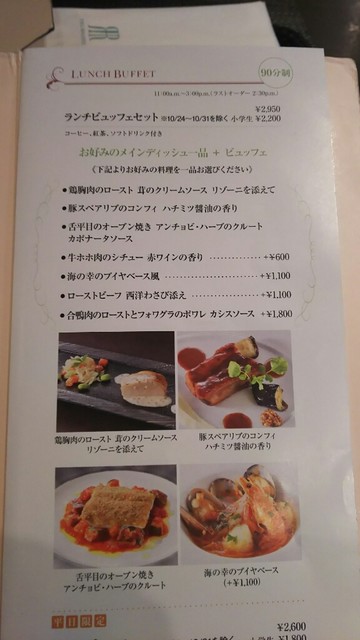 LUNCH BUFFET
90分制
11:00a.m.~3:00p.m.(ラストオーダー 2:30p.m.)
¥2,950
ランチビュッフェセット ※10/24～10/31を除く 小学生 ¥2,200
コーヒー、紅茶、ソフトドリンク付き
お好みのメインディッシュ一品 + ビュッフェ
《下記よりお好みの料理を一品お選びください》
●鶏胸肉のロースト 茸のクリームソース リゾーニを添えて
●豚スペアリブのコンフィ ハチミツ醤油の香り
●舌平目のオーブン焼き アンチョビ・ハーブのクルート
カポナータソース
●牛ホホ肉のシチュー 赤ワインの香り ………………… +¥600
●海の幸のブイヤベース風 ………………… +¥1,100
●ローストビーフ 西洋わさび添え ………………… +¥1,100
●合鴨肉のローストとフォワグラのポワレ カシスソース … +¥1,800
鶏胸肉のロースト 茸のクリームソース
リゾーニを添えて
豚スペアリブのコンフィ
ハチミツ醤油の香り
舌平目のオーブン焼き
アンチョビ・ハーブのクルート
海の幸のブイヤベース
(+¥1,100)
平日限定
¥2,600
を除く 小学生 ¥1,800